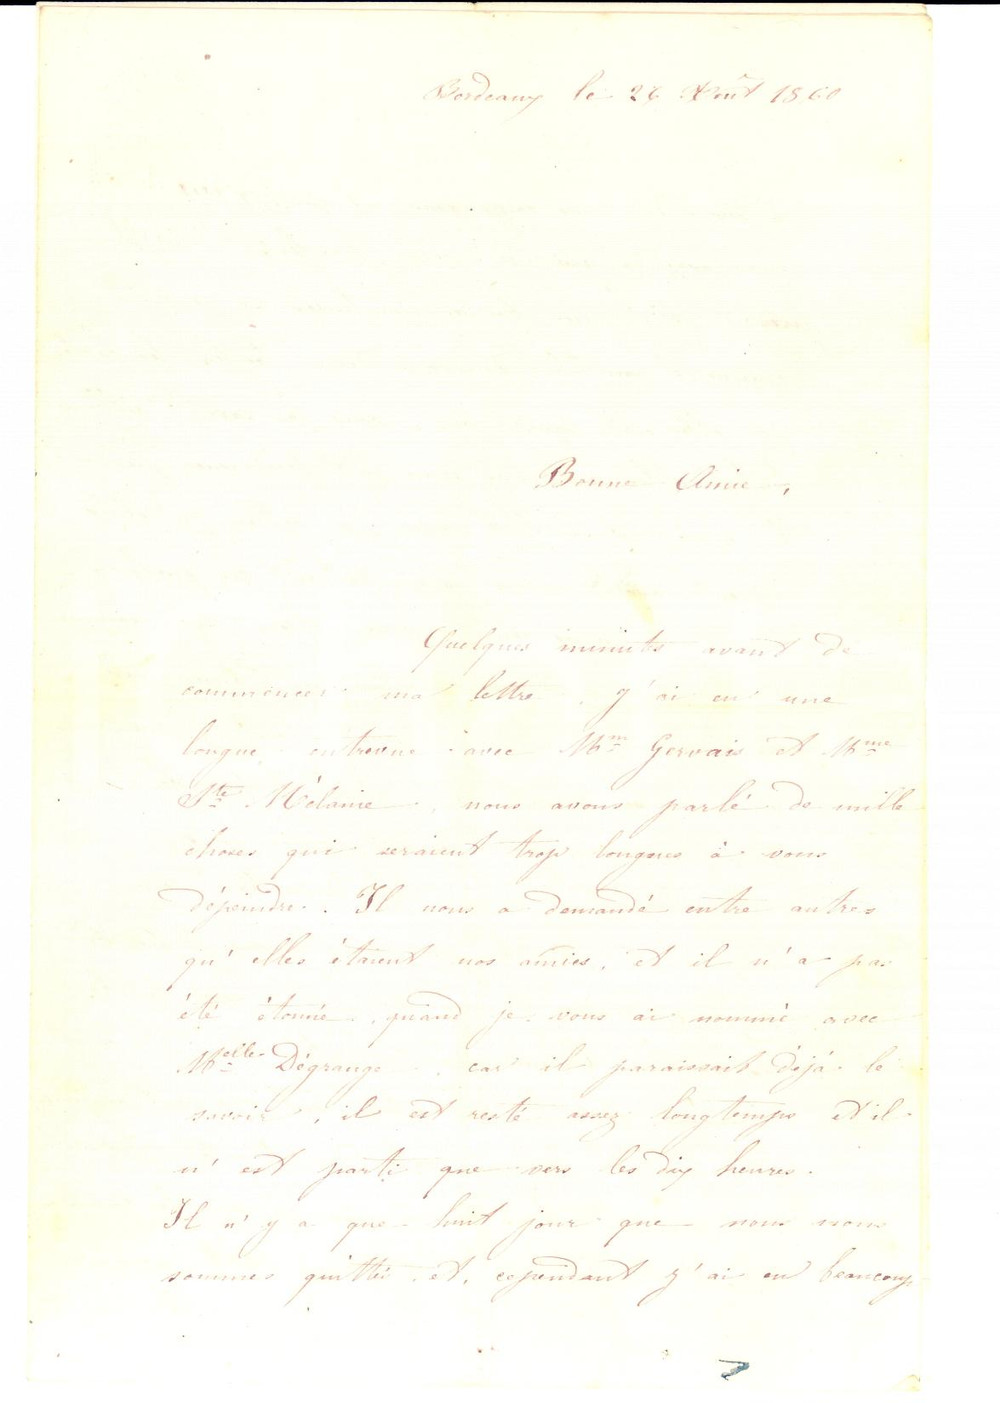 Bordeaux le 26 Août 1860
Bonne Amie,
Quelques minuts avant de
commencer ma lettre, j'ai eu une
longue entrevue avec Mm Gervais et Mme
Ste Mélanie, nous avons parlé de mille
choses qui seraient trop longues à vous
dépeindre. Il nous a demandé entre autres
qu'elles étaient nos amies, et il n'a pas
été étonné, quand je vous ai nommé avec
Melle Dégrange, car il paraissait déjà le
savoir, il est resté assez longtemps et il
n'est parti que vers les dix heures.
Il n'y a que huit jour que nous nous
sommes quittés, et, cependant j'ai eu beaucoup